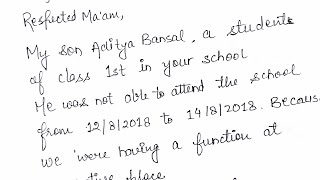 Respected Ma'am,
My son Aditya Bansal, a student
of class 1st in your school
He was not able to attend the school
from 12/8/2018 to 14/8/2018. Because
we were having a function at
place